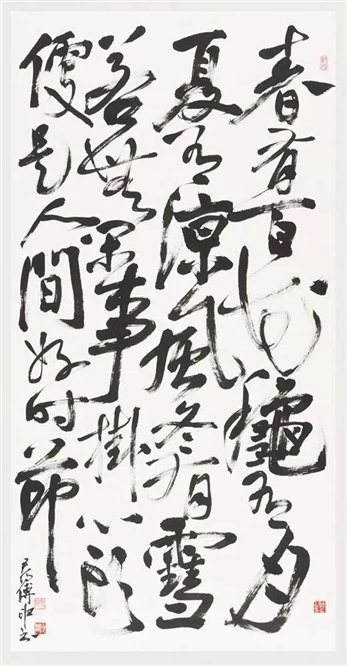 春有百花龝有月
夏有涼風冬有雪
若無闲事掛心头
便是人間好时節